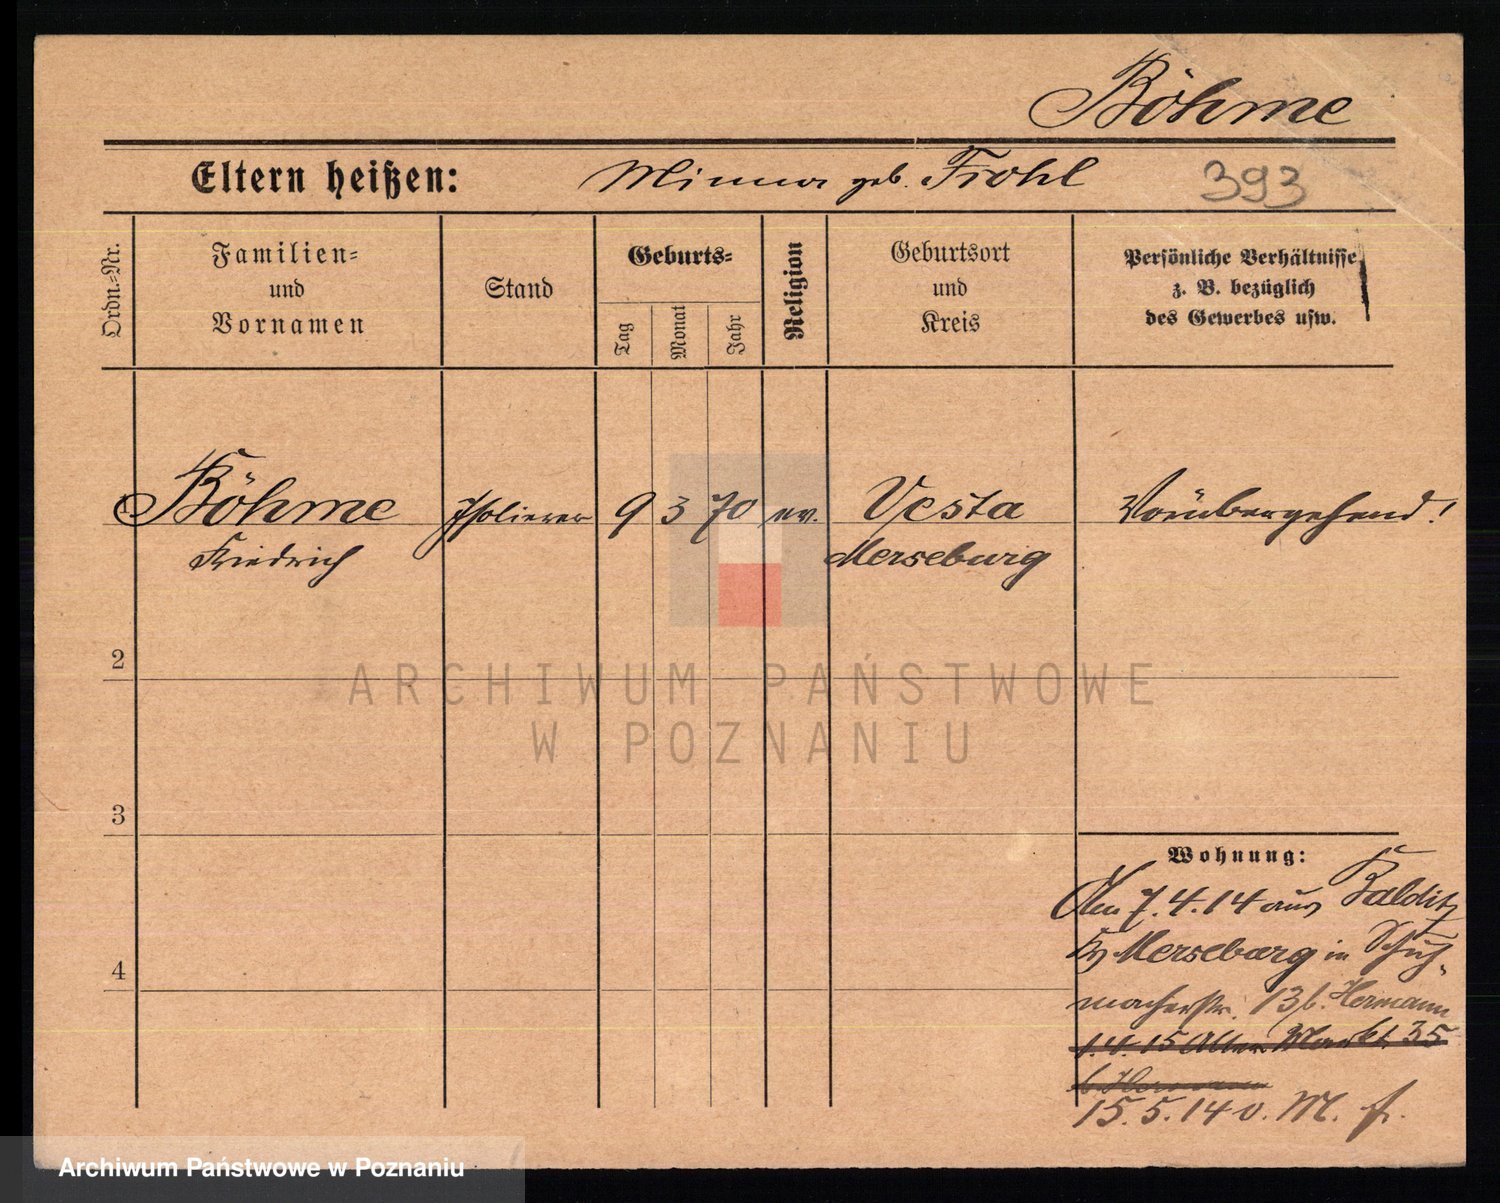 Böhme
Eltern heißen: Minna geb. Frohl 393
Ordn.-Nr.
Familien- und Vornamen
Stand
Geburts-
Tag
Monat
Jahr
Religion
Geburtsort und Kreis
Persönliche Verhältnisse
z. B. bezüglich
des Gewerbes usw.
1 Böhme Isolierer 9 3 70 ev. Vesta Vorübergehend!
Friedrich Merseburg
2
ARCHIWUM PAŃSTWOWE
W POZNANIU
3
Wohnung:
Am 7.4.14 aus
Merseburg in Schuh-
4
macherstr. 13 b. Hermann
1.4.15 Alter Markt 35
b. Hermann
15.5.14 v. M.
Archiwum Państwowe w Poznaniu